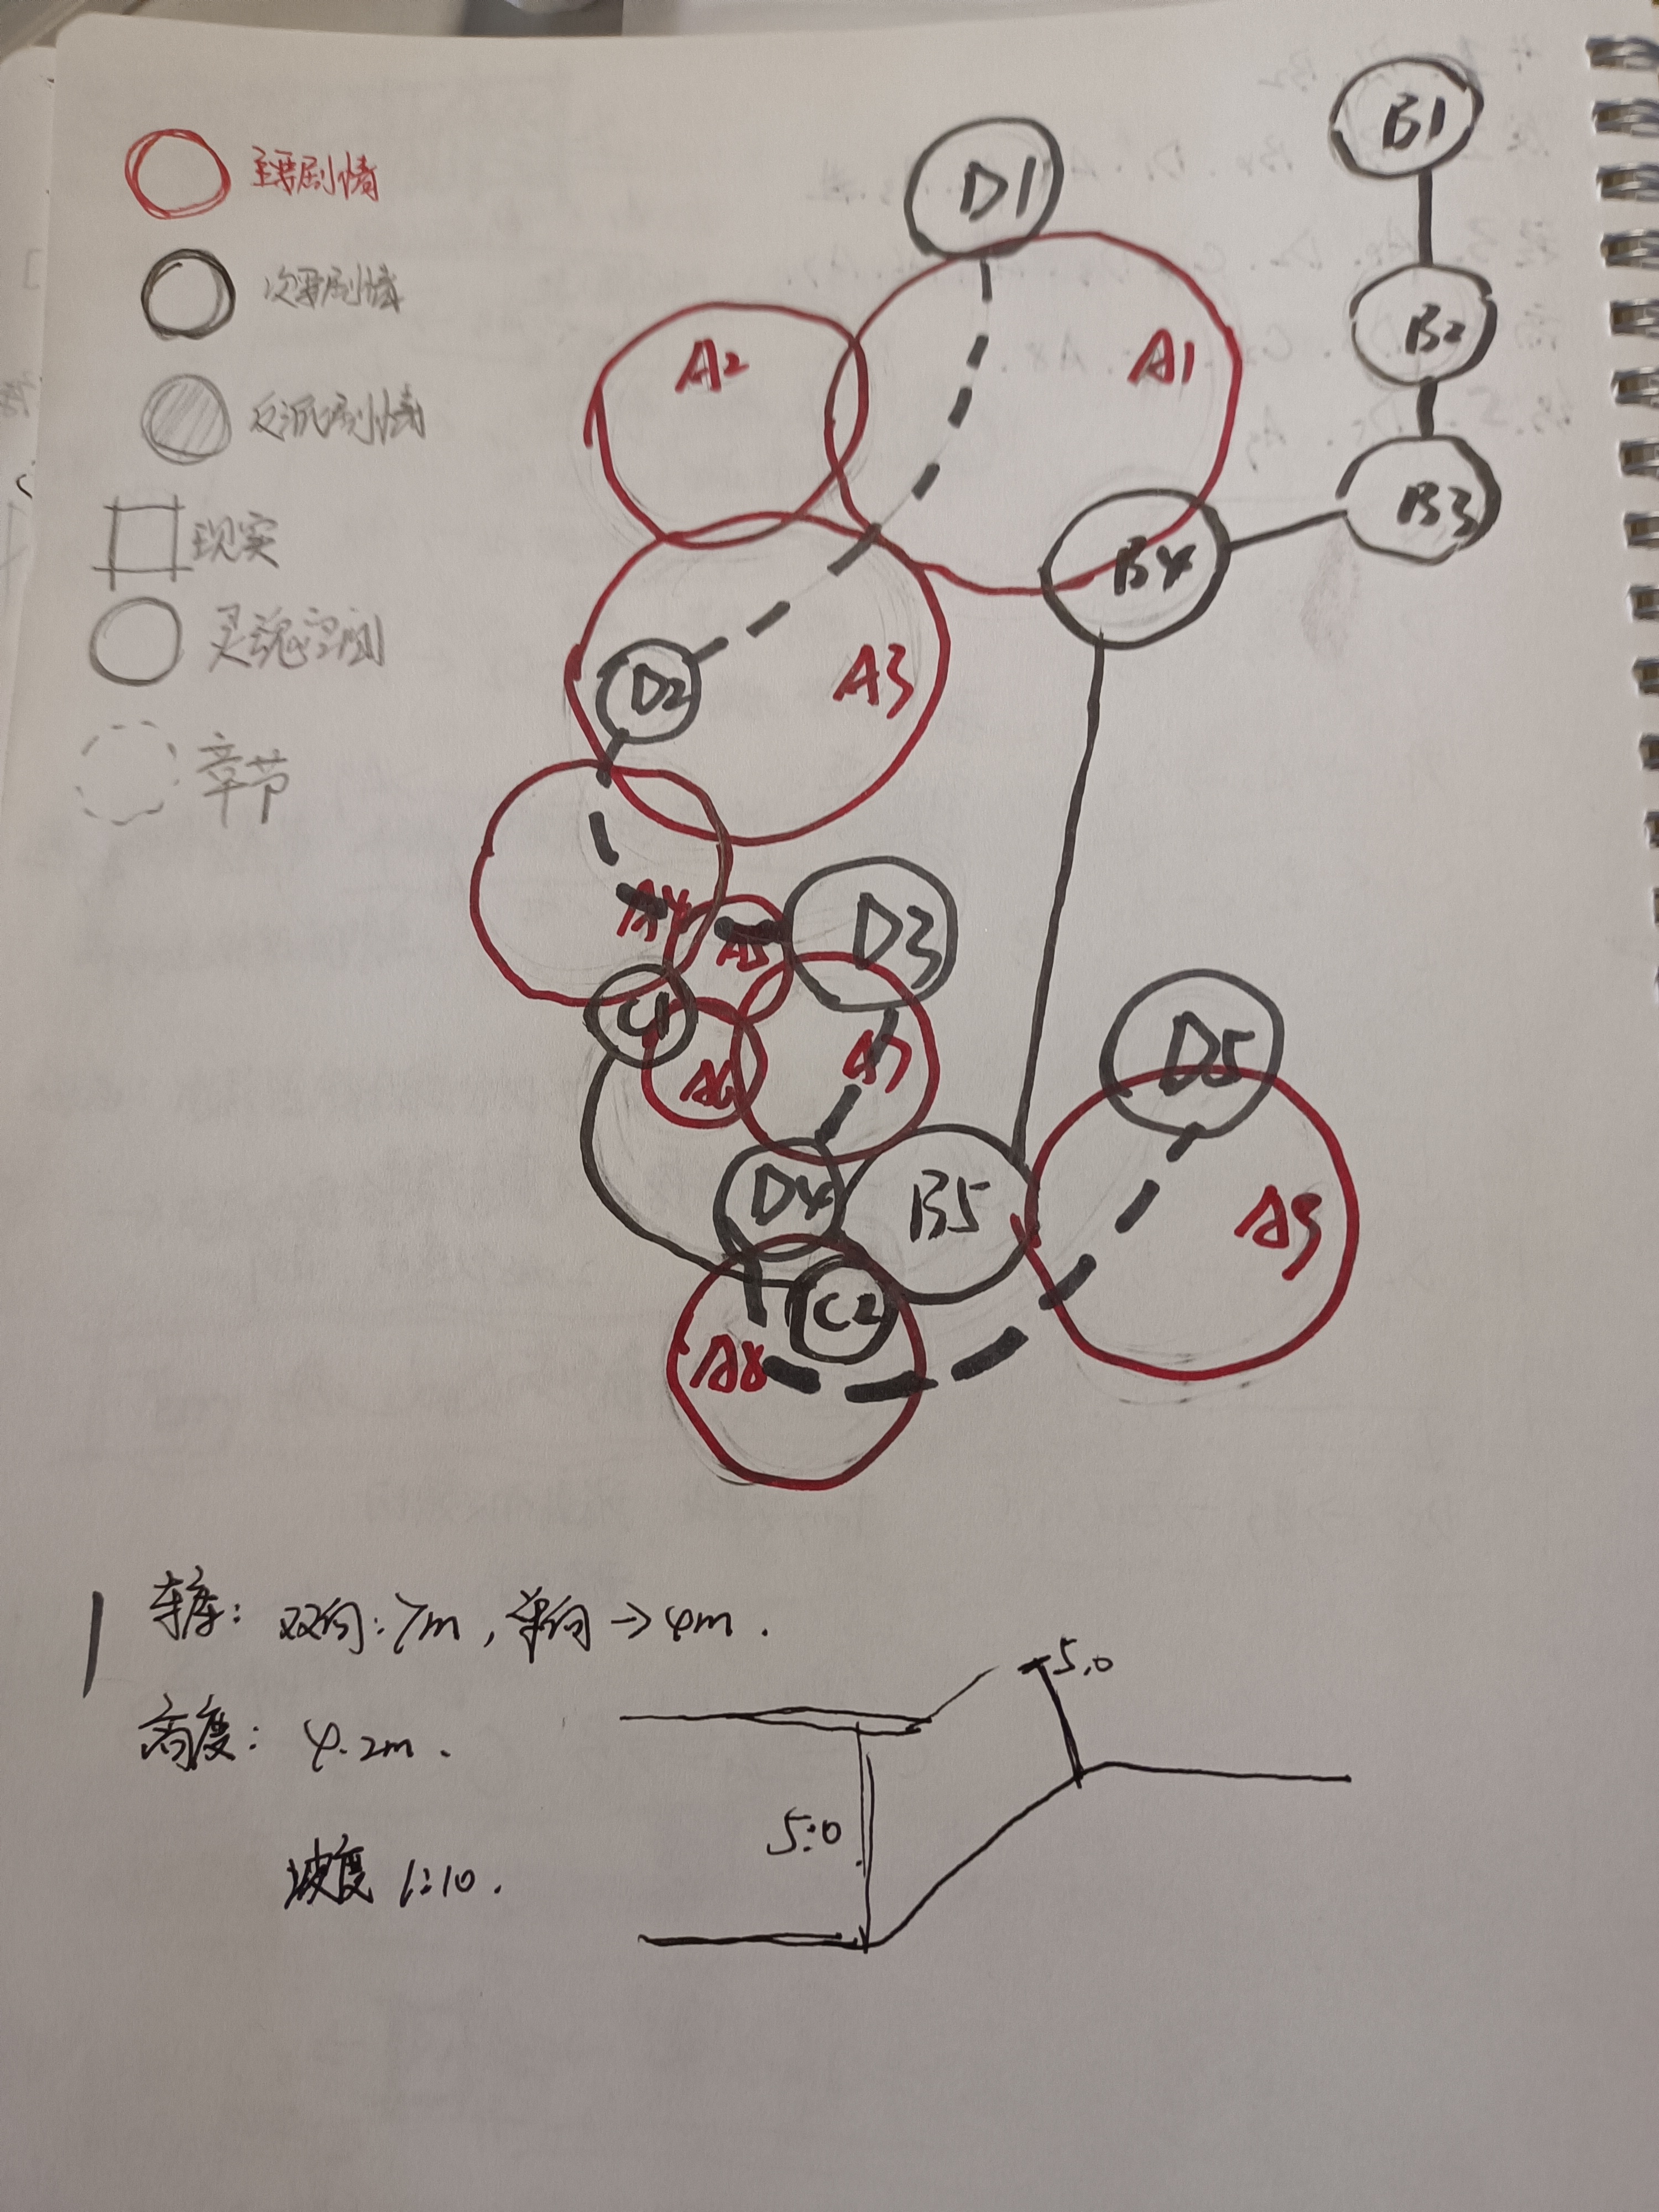 主要剧情
次要剧情
反派剧情
现实
灵魂空间
章节
B1
D1
B2
A2
A1
B3
B4
D2
A3
A4
A5
D3
C1
A6
A7
D5
D4
B5
A9
C2
A8
车库：双向：7m，单向→4m．
高度：4.2m．
坡度 1:10．
5.0
5.0